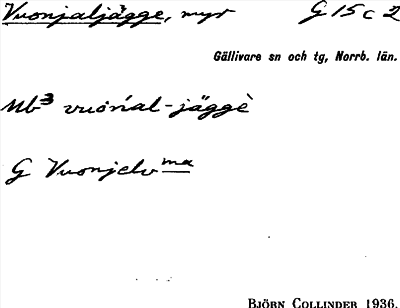 Vuonjaljägge, myr G 15 c 2
Gällivare sn och tg, Norrb. län.
Nb³ vuońal-jäggè
G Vuonjelv ma
BJÖRN COLLINDER 1936.